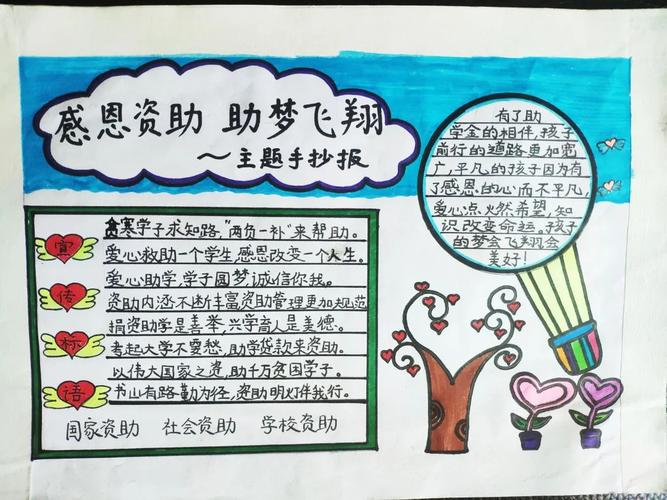 感恩资助 助梦飞翔
～主题手抄报
有了助
学金的相伴,孩子
前行的道路更加宽
广,平凡的孩子因为有
了感恩的心而不平凡,
爱心点火然希望,知
识改变命运。孩子
的梦会飞翔会
美好!
宣
传
标
语
贫寒学子求知路,"两负一补"来帮助。
爱心救助一个学生,感恩改变一个人生。
爱心助学,学子圆梦,诚信你我。
资助内涵不断丰富资助管理更加规范
捐资助学是善举,兴学育人是美德。
考起大学不要愁,助学贷款来资助。
以伟大国家之资,助千万贫困学子。
书山有路勤为径,资助明灯伴我行。
国家资助 社会资助 学校资助